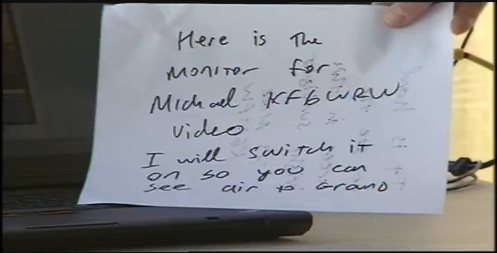 Here is The
Monitor for
Michael KF6WRW
Video
I will switch it
on so you can
see air to Ground